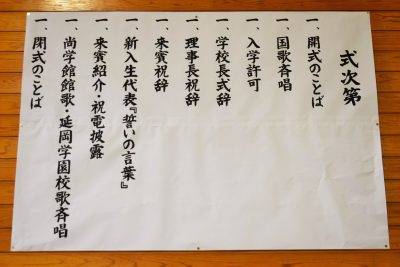 式次第
一、開式のことば
一、国歌斉唱
一、入学許可
一、学校長式辞
一、理事長祝辞
一、来賓祝辞
一、新入生代表『誓いの言葉』
一、来賓紹介・祝電披露
一、尚学館館歌・延岡学園校歌斉唱
一、閉式のことば